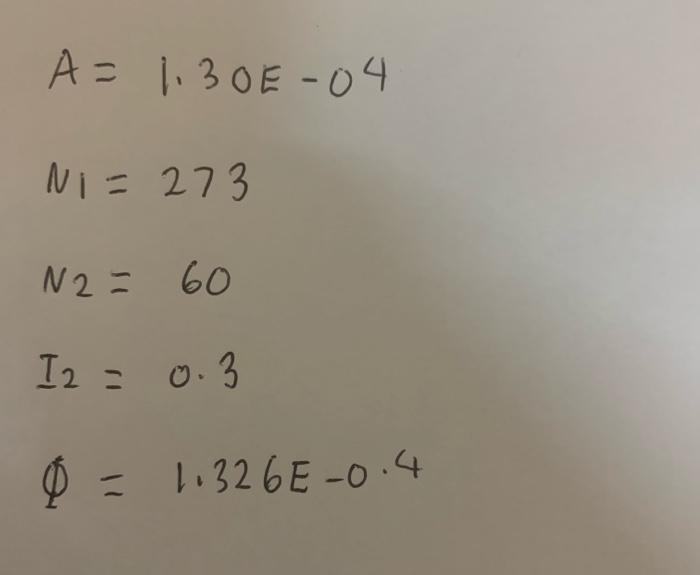 A = 1.30E-04
N1 = 273
N2 = 60
I2 = 0.3
Φ = 1.326E-0.4